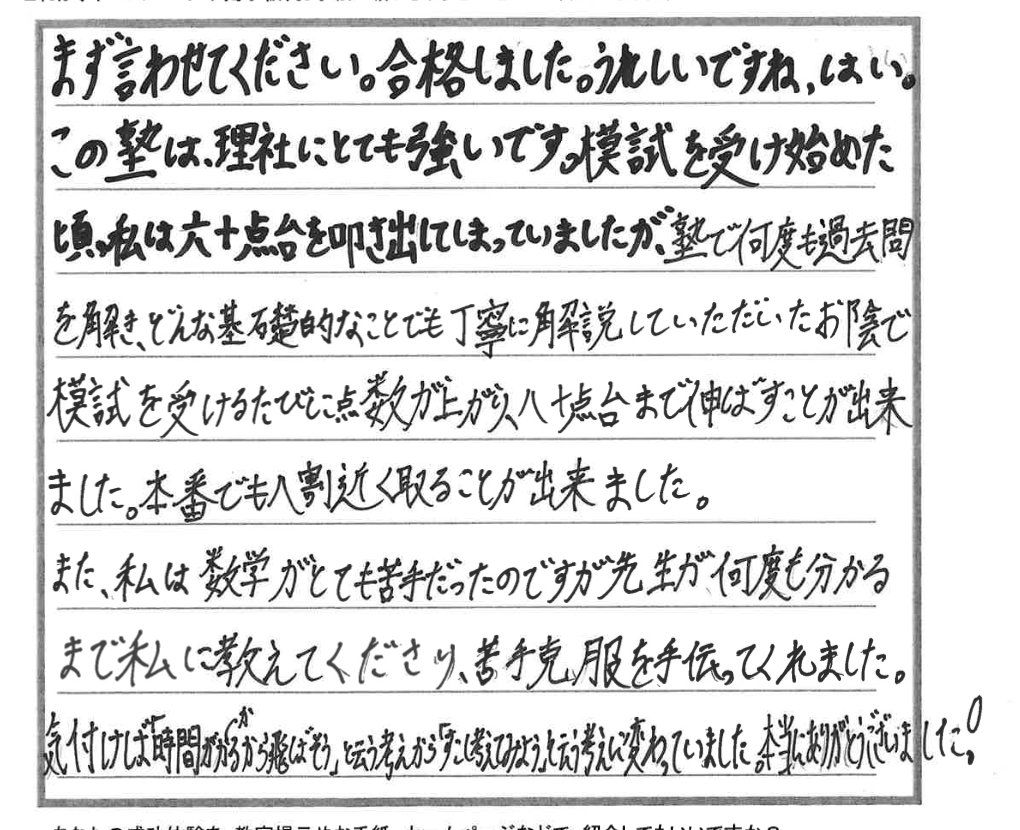 まず言わせてください。合格しました。うれしいですね、はい。
この塾は、理社にとても強いです。模試を受け始めた
頃、私は六十点台を叩き出してしまっていましたが、塾で何度も過去問
を解き、どんな基礎的なことでも丁寧に解説していただいたお陰で
模試を受けるたびに点数が上がり、八十点台まで伸ばすことが出来
ました。本番でも八割近く取ることが出来ました。
また、私は数学がとても苦手だったのですが先生が何度も分かる
まで私に教えてくださり、苦手克服を手伝ってくれました。
気付けば「時間がかかるから飛ばそう」と云う考えから「すこし考えてみよう」と云う考えに変わっていました。本当にありがとうございました。